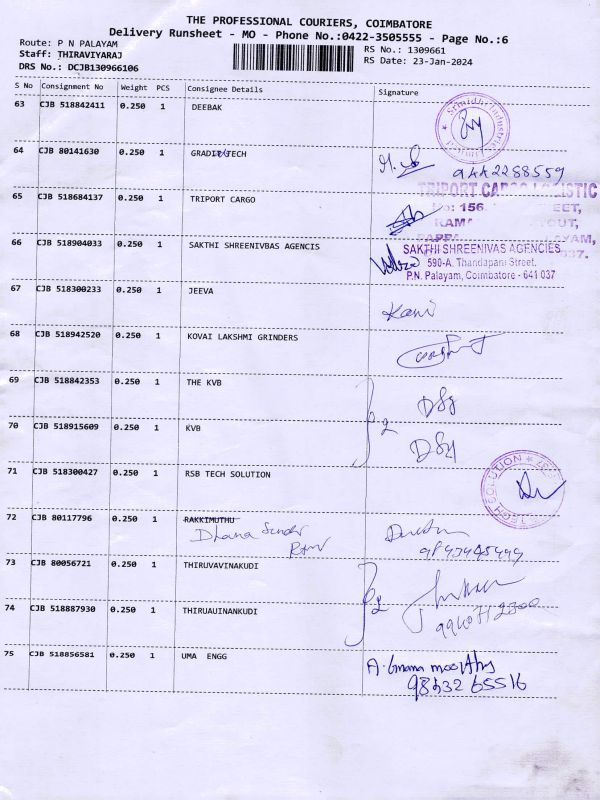 THE PROFESSIONAL COURIERS, COIMBATORE
Delivery Runsheet - MO - Phone No.:0422-3505555 - Page No.:6
Route: P N PALAYAM
RS No.: 1309661
Staff: THIRAVIYARAJ
RS Date: 23-Jan-2024
DRS No.: DCJB130966106
S No Consignment No Weight PCS Consignee Details Signature
63 CJB 518842411 0.250 1 DEEBAK
64 CJB 80141630 0.250 1 TECH
9442288559
65 CJB 518684137 0.250 1 TRIPORT CARGO
TRIPORT CARGO LOGISTIC
66 CJB 518904033 0.250 1 SAKTHI SHREENIVBAS AGENCIS
SAKTHI SHREENIVAS AGENCIES
590-A, Thandapani Street,
P.N. Palayam, Coimbatore - 641 037
67 CJB 518300233 0.250 1 JEEVA
Kani
68 CJB 518942520 0.250 1 KOVAI LAKSHMI GRINDERS
69 CJB 518842353 0.250 1 THE KVB
70 CJB 518915609 0.250 1 KVB
2
71 CJB 518300427 0.250 1 RSB TECH SOLUTION
72 CJB 80117796 0.250 1 RAKKIMUTHU
Dhana Sundar
73 CJB 80056721 0.250 1 THIRUVAVINAKUDI
74 CJB 518887930 0.250 1 THIRUAUINANKUDI
2
75 CJB 518856581 0.250 1 UMA ENGG
98432 65516